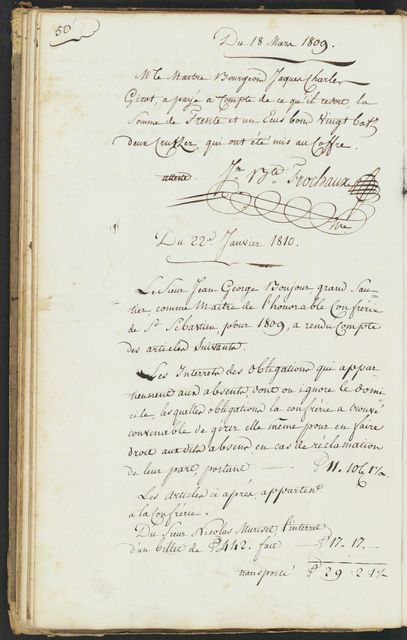 50
Du 18 Mars 1809.
Mr le Maitre Bourgeois Jaques Charles
Girot, a payé a Compte de ce qu'il redoit la
Somme de Trente et un Ecus bons Vingt batz
deux Crutzer, qui ont été mis au Coffre.
atteste
Frochaux
Du 22d Janvier 1810.
Le Sieur Jean George Bonjour, grand Sau=
tier, comme Maitre de l'honorable Confrérie
de St Sébastien, pour 1809, a rendu Compte
des articles Suivants.
Les Interrets des Obligations qui appar=
tiennent aux absents, dont on ignore le domi=
cile, lesquelles obligations la confrérie a trouvé
convenable de gérer elle même pour en faire
droit aux dits absens en cas de réclamation
de leur part portent
Les articles ci après, appartenns
a la Confrérie.
Du Sieur Nicolas Muriset l'interret
d'un billet de 442. fait 17. 17.
transporté 29